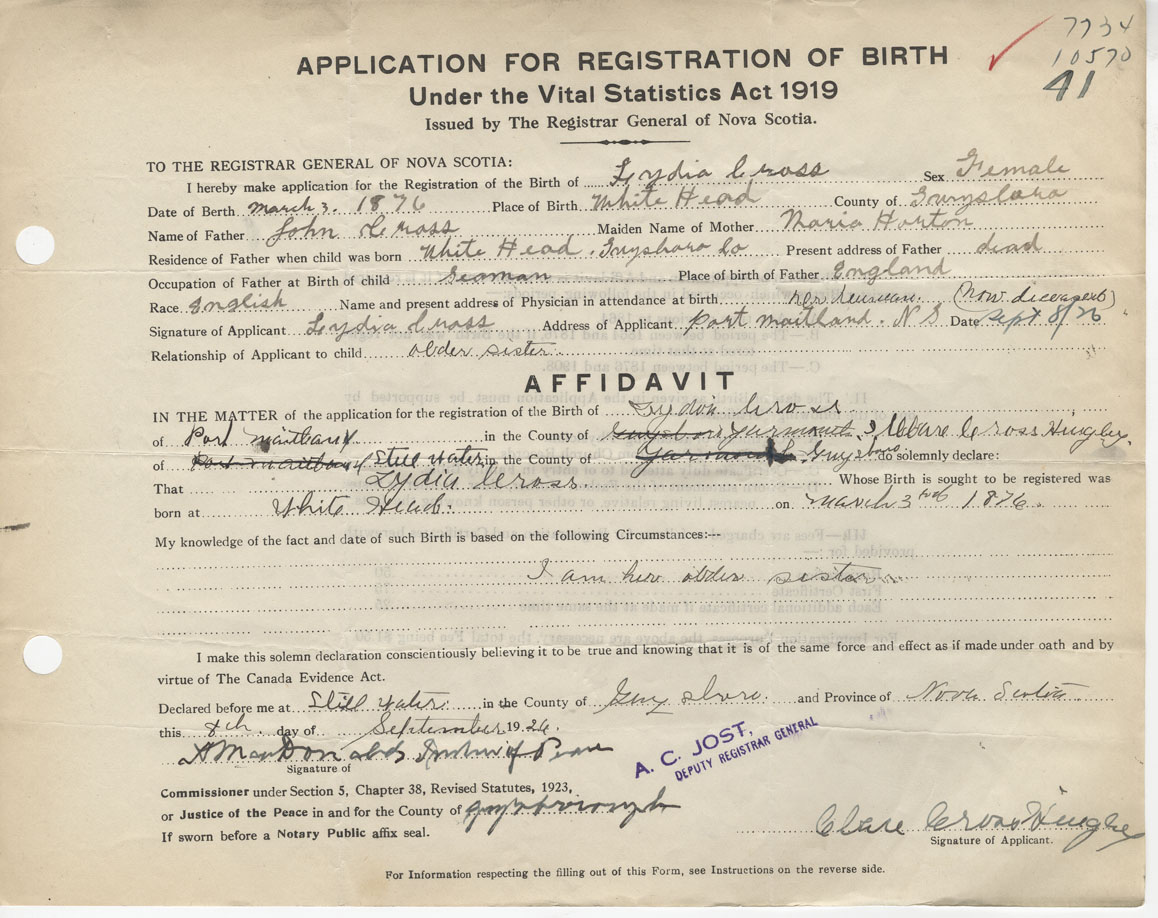 7734
10570
41
APPLICATION FOR REGISTRATION OF BIRTH
Under the Vital Statistics Act 1919
Issued by The Registrar General of Nova Scotia.
TO THE REGISTRAR GENERAL OF NOVA SCOTIA:
I hereby make application for the Registration of the Birth of Lydia Cross Sex Female
Date of Berth March 3. 1876 Place of Birth White Head County of Guysboro
Name of Father John Cross Maiden Name of Mother Maria Horton
Residence of Father when child was born White Head, Guysboro Co Present address of Father dead
Occupation of Father at Birth of child Seaman Place of birth of Father England
Race English Name and present address of Physician in attendance at birth (now deceased)
Signature of Applicant Lydia Cross Address of Applicant Port Maitland. N S Date Sept 8/26
Relationship of Applicant to child older sister
AFFIDAVIT
IN THE MATTER of the application for the registration of the Birth of Lydia Cross
of Port Maitland in the County of Guysboro Yarmouth I Clare Cross Hingley
of Port Maitland Still Water in the County of Yarmouth Guysboro do solemnly declare:
That Lydia Cross Whose Birth is sought to be registered was
born at White Head on March 3rd 1876.
My knowledge of the fact and date of such Birth is based on the following Circumstances:—
I am her older sister
I make this solemn declaration conscientiously believing it to be true and knowing that it is of the same force and effect as if made under oath and by
virtue of The Canada Evidence Act.
Declared before me at Still Water in the County of Guysboro and Province of Nova Scotia
this 8th day of September 1926.
MacDonald Justice of Peace
Signature of
A. C. JOST,
DEPUTY REGISTRAR GENERAL
Commissioner under Section 5, Chapter 38, Revised Statutes, 1923,
or Justice of the Peace in and for the County of Guysborough
If sworn before a Notary Public affix seal.
Clare Cross Hingley
Signature of Applicant.
For Information respecting the filling out of this Form, see Instructions on the reverse side.